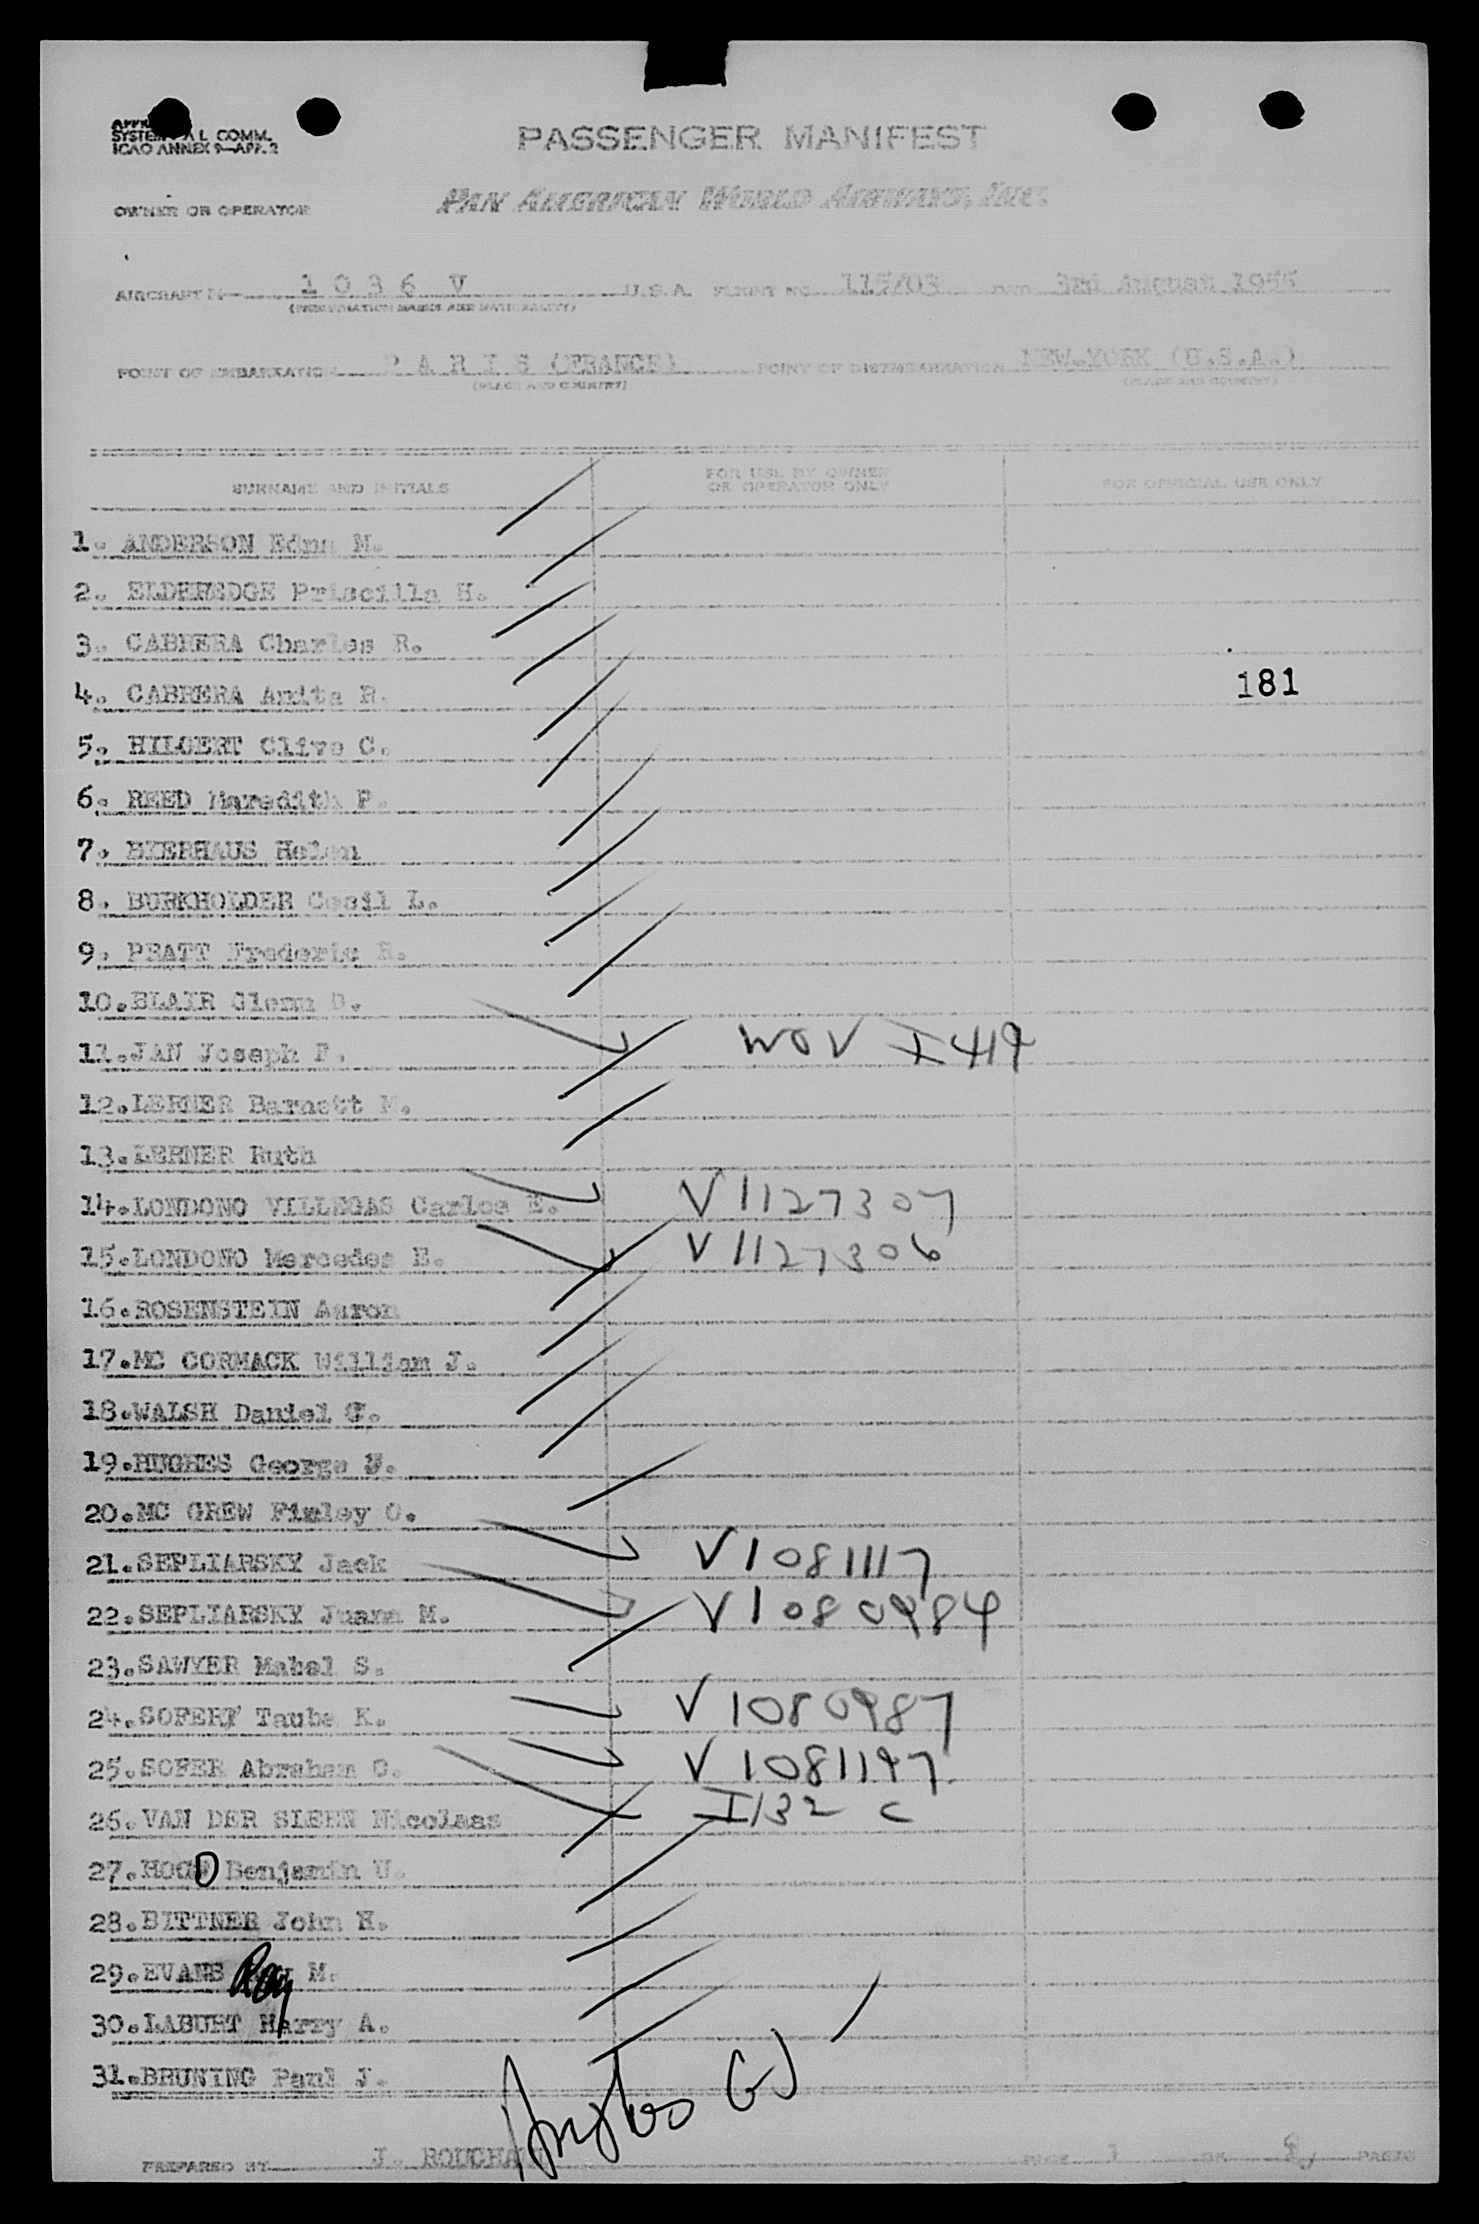 SYSTE AL COMM.
ICAO ANNEX 9—APP. 2
PASSENGER MANIFEST
OWNER OR OPERATOR PAN AMERICAN WORLD AIRWAYS, INC.
AIRCRAFT N 1 0 3 6 V U.S.A. FLIGHT NO 115/03 DATE 3rd August 1955
(REGISTRATION MARKS AND NATIONALITY)
POINT OF EMBARKATION P A R I S (FRANCE) POINT OF DISEMBARKATION NEW-YORK (U.S.A.)
(PLACE AND COUNTRY) (PLACE AND COUNTRY)
SURNAME AND INITIALS FOR USE BY OWNER OR OPERATOR ONLY FOR OFFICIAL USE ONLY
1. ANDERSON Edna M.
2. ELDEREDGE Priscilla H.
3. CABRERA Charles R.
4. CABRERA Anita R. 181
5. HILGERT Clive C.
6. REED Maredith P.
7. BIERHAUS Helen
8. BURKHOLDER Cecil L.
9. PRATT Frederic R.
10. BLAIR Glenn D.
11. JAN Joseph P. WOV I 419
12. LERNER Barnett M.
13. LERNER Ruth
14. LONDONO VILLEGAS Carlos E. V1127307
15. LONDONO Mercedes E. V1127306
16. ROSENSTEIN Aaron
17. MC CORMACK William J.
18. WALSH Daniel C.
19. HUGHES George
20. MC GREW Finley O.
21. SEPLIARSKY Jack V1081117
22. SEPLIARSKY Juana M. V1080984
23. SAWYER Mabel S.
24. SOFER Taube K. V1080987
25. SOFER Abraham O. V1081197
26. VAN DER SLEEN Nicolaas I132 C
27. HOOD Benjamin U.
28. BITTNER John H.
29. EVANS Ray M.
30. LABURT Harry A.
31. BRUNING Paul J.
PREPARED BY J. PAGE 1 OF PAGES